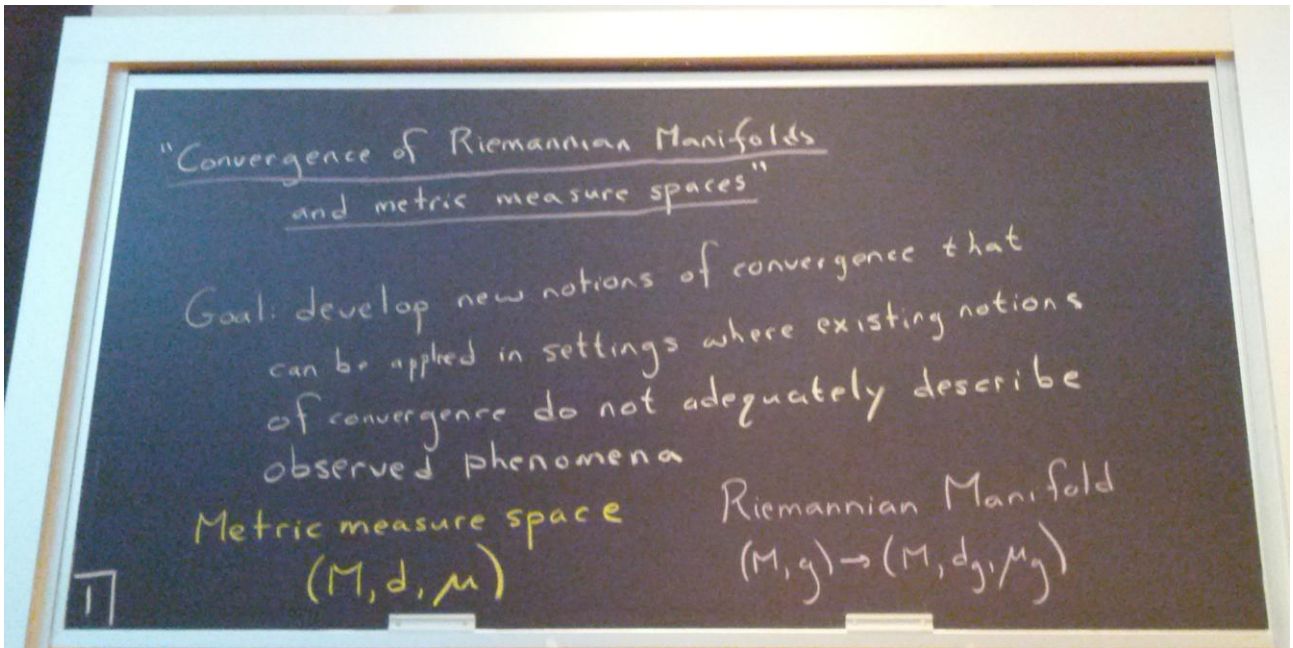 "Convergence of Riemannian Manifolds
and metric measure spaces"
Goal: develop new notions of convergence that
can be applied in settings where existing notions
of convergence do not adequately describe
observed phenomena
Metric measure space
(M, d, μ)
Riemannian Manifold
(M, g) → (M, d_g, μ_g)
1